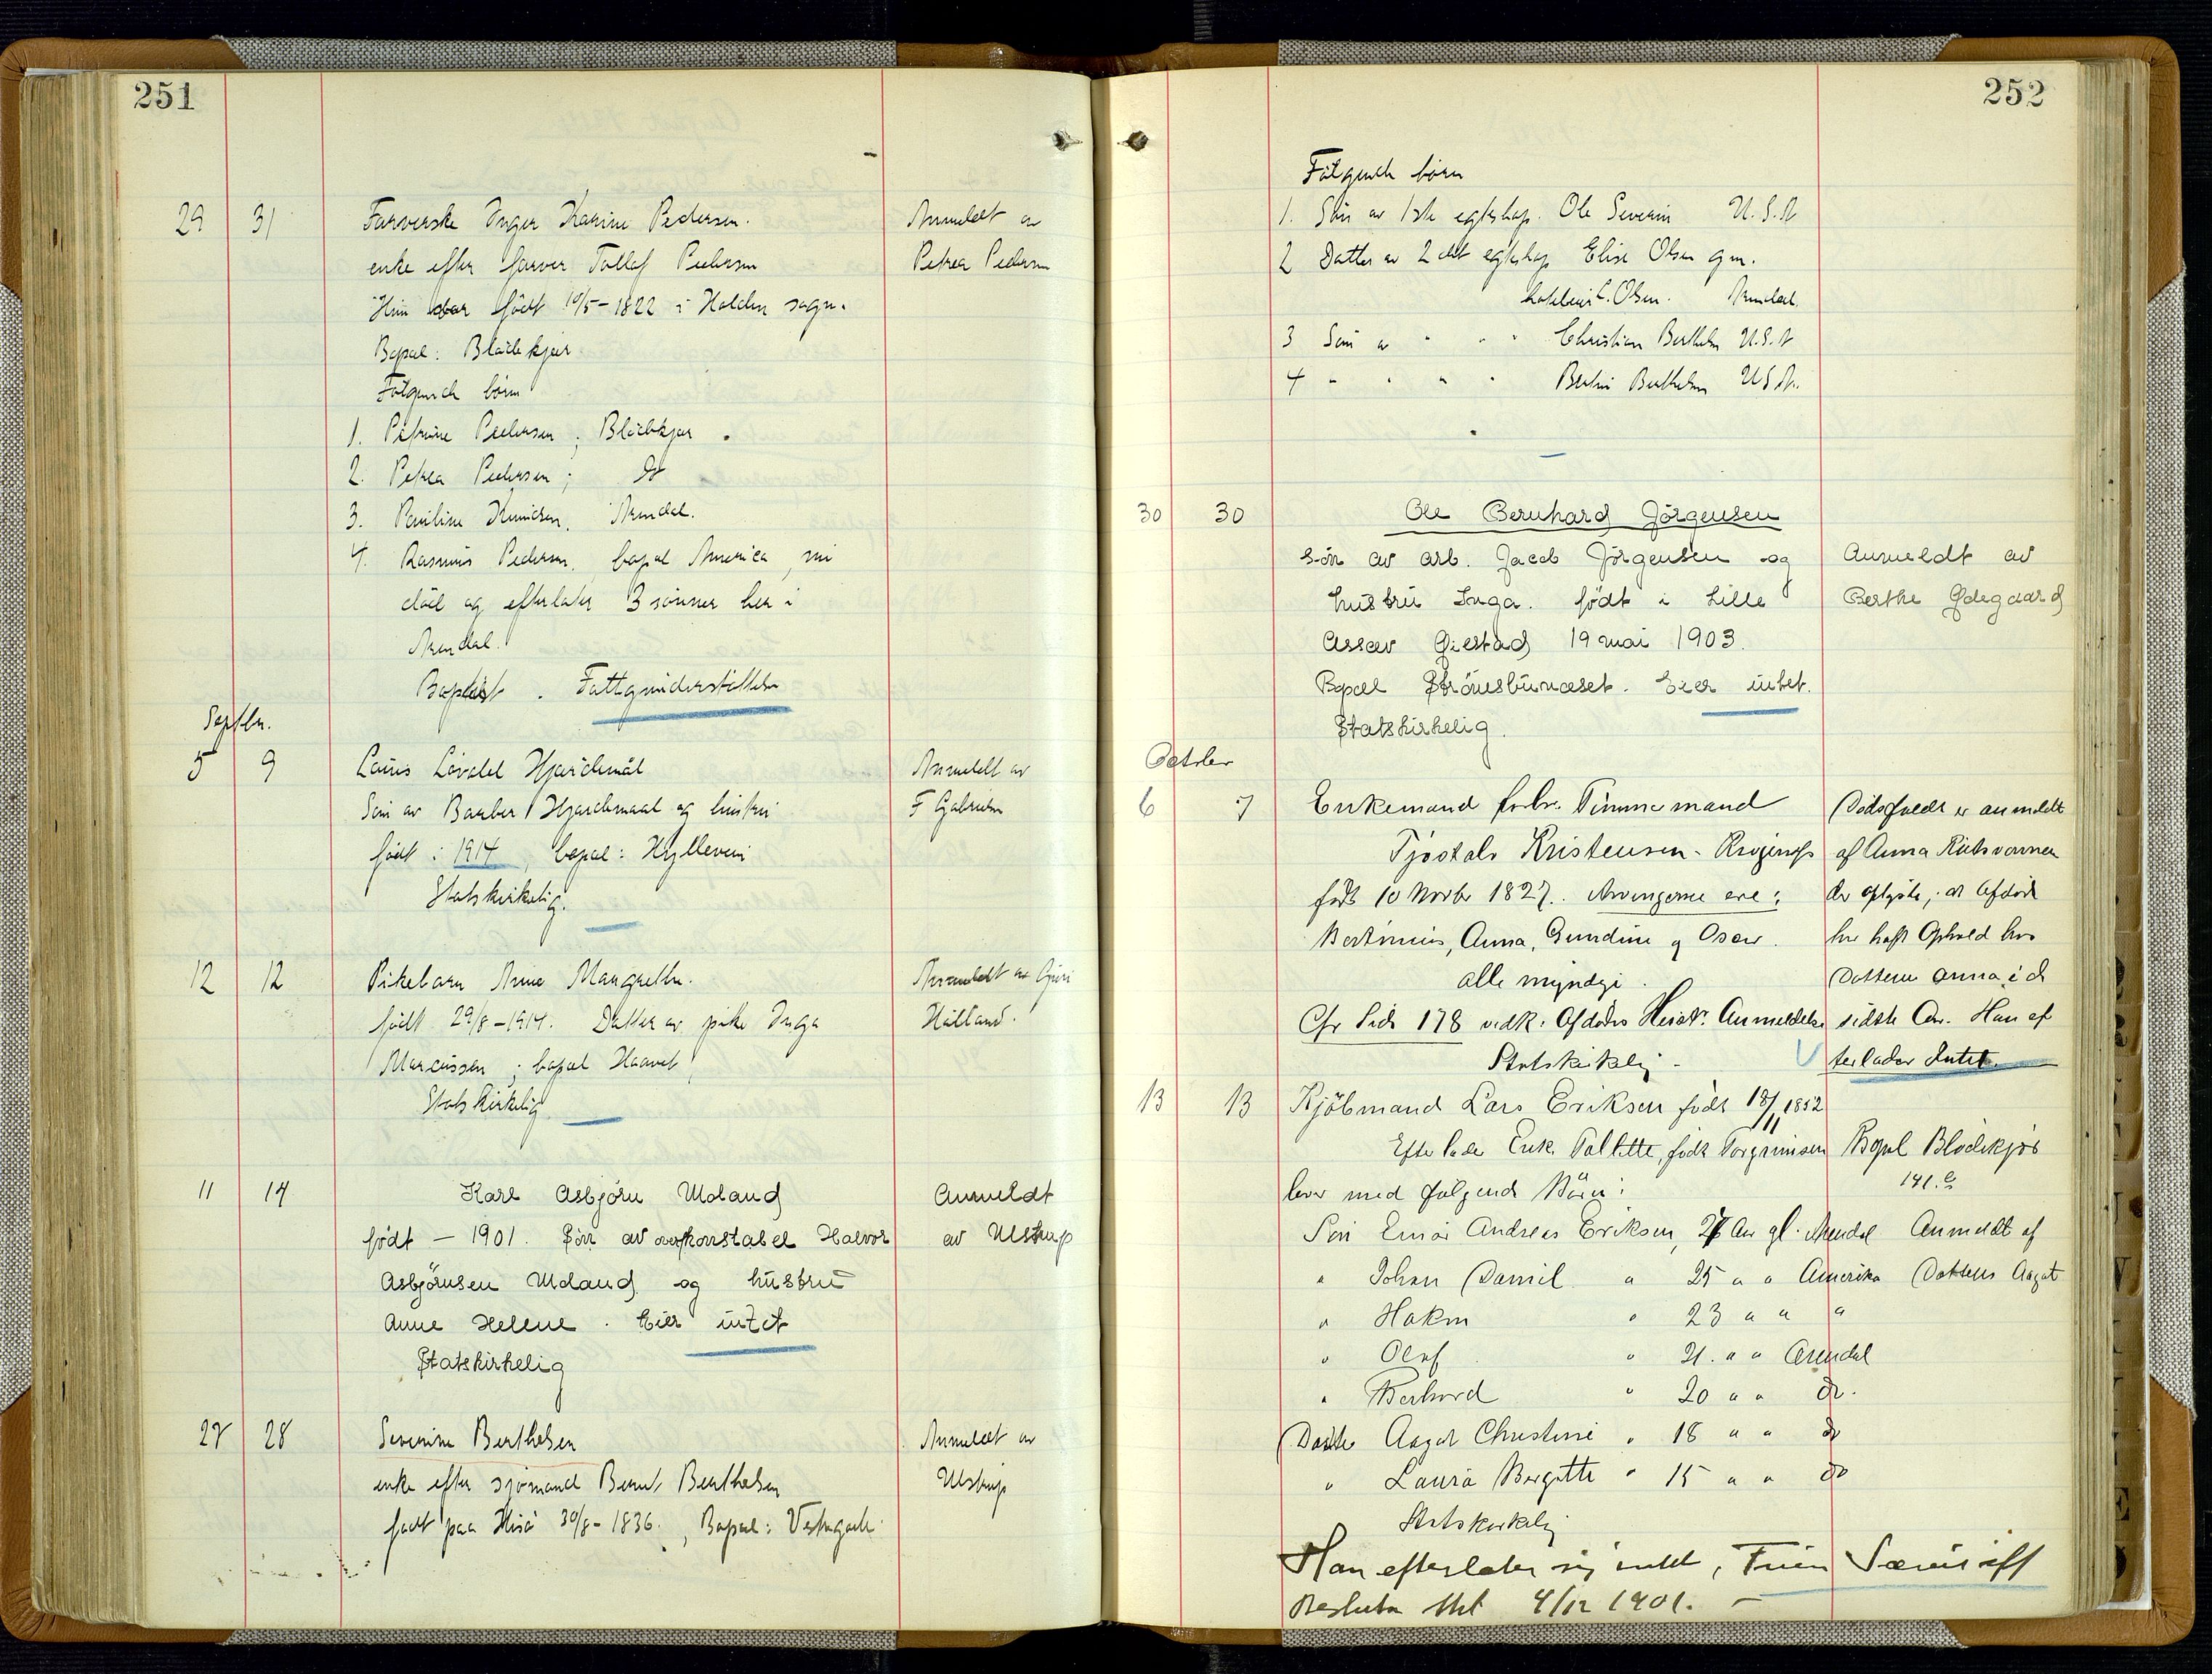 251
29 31 Farverske Inger Karine Pedersen. Anmeldt av
enke efter farver Tollef Pedersen Petrea Pedersen
Hun var född 10/5-1822 i Holden sogn.
Bopæl: Blödekjær
Følgende börn
1. Petrine Pedersen; Blödekjær.
2. Petrea Pedersen; Do
3. Pauline Knudsen, Arendal.
4. Rasmus Pedersen, bopæl America, nu
död og efterlater 3 sönner her i
Arendal.
Baptist. Fattigunderstöttelse
Septbr.
5 9 Lauris Lövdal Hjardemål Anmeldt av
Sön av Barber Hjardemaal og hustru F Gabrielsen
född i 1914, bopæl: Hylleveien
Statskirkelig.
12 12 Pikebarn Anne Margrethe. Anmeldt av Guri
född 29/8-1914. Datter av pike Inga Haaland.
Marcussen; bopæl Haavet
Statskirkelig
11 14 Karl Asbjörn Moland Anmeldt
født - 1901. Sön av overkonstabel Halvor av Ulstrup
Asbjörnsen Moland og hüstrü
Anne Helene. Eier intet
Statskirkelig
27 28 Severine Berthelsen Anmeldt av
enke efter sjömand Bernt Berthelsen Ulstrup
född paa Hisö 30/8-1836, Bopæl: Vestregade
252
Følgende børn
1. Sön av 1ste egteskap. Ole Severin U.S.A
2 Datter av 2det egteskap Elise Olsen gm.
Olsen. Arendal.
3 Sön av " " " Christian Berthelsen U.S.A
4 " " " " Berthelsen U.S.A.
30 30 Ole Bernhard Jörgensen
Sön av arb. Jacob Jörgensen og Anmeldt av
hustrü Inga. född i Lille Berthe Ødegaard
Assev Gjestad 19 mai 1903.
Bopæl Strömsbüneset. Eier intet.
Statskirkelig.
October
6 7 Enkemand forhv. Tömmermand Dödsfaldt er anmeldt
Tjöstolv Kristensen- af Anna
födt 10 Novbr 1827. Arvingerne ere: der oplyste, at Afdöde
Bertinius, Anna, Gundine og Oscar. har haft Ophold hos
alle myndige. Datteren Anna i de
Cfr Side 178 vedk. Afdödes Hustr. Anmeldelse sidste Aar. Han ef
Statskirkelig - terlader Intet.
13 13 Kjöbmand Lars Eriksen födt 18/11 1852
Efterlader Enke Tallette, födt Torgrimsen Bopæl Blödekjær
lever med følgende Börn: 141.
Sön Einar Andreas Eriksen, 27 Aar gl. Arendal Anmeldt af
" Johan Daniel " 25 " " Amerika Datteren Aagot
" Hakon " 23 " " "
" Olaf " 21. " " Arendal
" Bernhard " 20 " " do.
Datter Aagot Christine " 18 " " do
" Laura Bergitte " 15 " " do
Statskirkelig
Han efterlater sig intet, Fruen Særeie iflg
4/12 1901. -